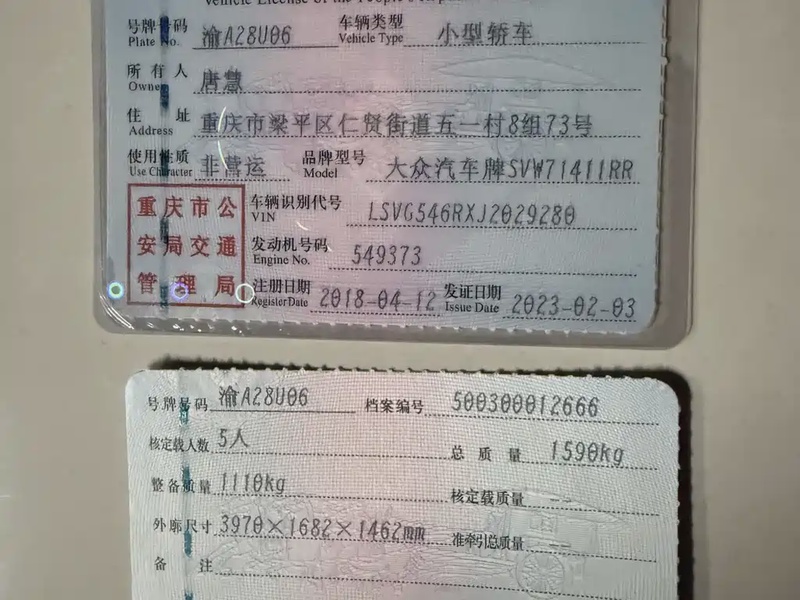 Vehicle License of the People's
号牌号码 Plate No. 渝A28U06 车辆类型 Vehicle Type 小型轿车
所有人 Owner 唐慧
住址 Address 重庆市梁平区仁贤街道五一村8组73号
使用性质 Use Character 非营运 品牌型号 Model 大众汽车牌SVW71411RR
重庆市公
安局交通
管理局
车辆识别代号 VIN LSVG546RXJ2029280
发动机号码 Engine No. 549373
注册日期 Register Date 2018-04-12 发证日期 Issue Date 2023-02-03
号牌号码 渝A28U06 档案编号 500300012666
核定载人数 5人 总质量 1590kg
整备质量 1110kg 核定载质量 --
外廓尺寸 3970×1682×1462mm 准牵引总质量 --
备注